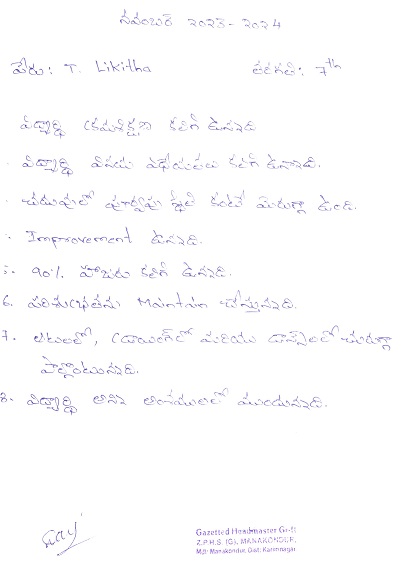 నవంబర్ 2023-2024
పేరు: T. Likitha తరగతి: 7th
విద్యార్థి క్రమశిక్షణ కలిగి ఉన్నది
విద్యార్థి వినయ విధేయతలు కలిగి ఉన్నాది.
చదువులో పూర్వపు స్థితి కంటే మెరుగ్గా ఉంది.
Improvement ఉన్నది.
5. 90% హాజరు కలిగి ఉన్నది.
6. పరిశుభ్రతను Maintain చేస్తున్నది.
7. ఆటలలో, డ్రాయింగ్‌లో మరియు డాన్స్‌లలో చురుగ్గా
పాల్గొంటున్నది.
8. విద్యార్థి అన్ని అంశములలో ముందున్నది.
Gazetted Headmaster Gr-II
Z.P.H.S. (G), MANAKONDUR,
M/D: Manakondur, Dist: Karimnagar